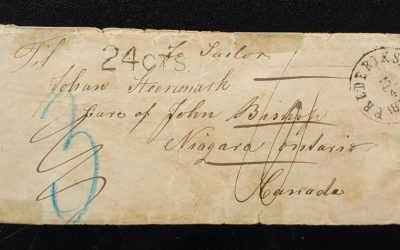 Til To Sailor
24cts.
Johan Steenmark
Care of John Bishop
Niagara Ontario
Canada
3
FREDERIKS